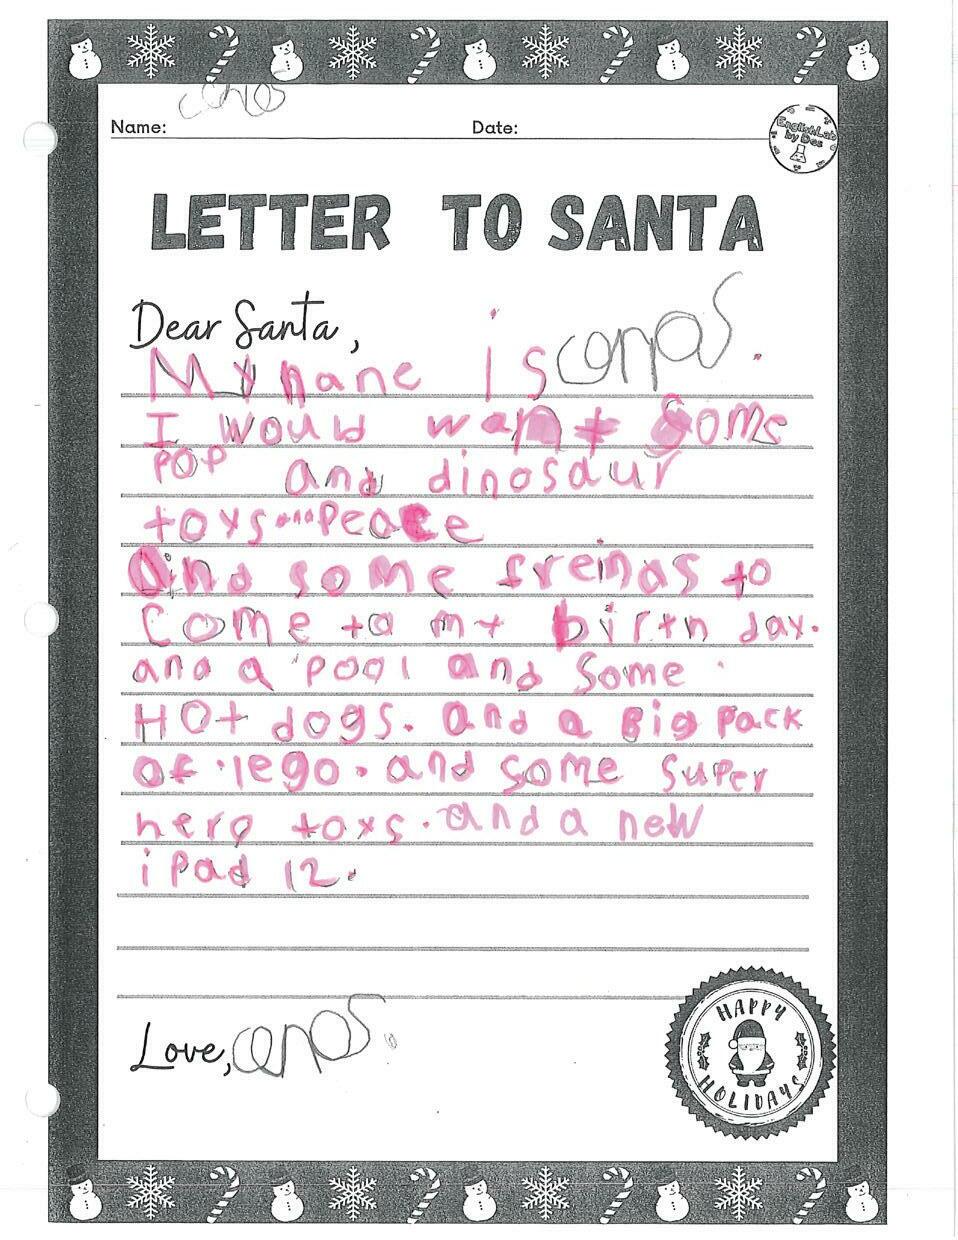 conos
Name: Date:
EnglishLab
by Des
LETTER TO SANTA
Dear Santa,
My nane is conos.
I would want some
POP and dinosaur
toys and Peace
And some freinds to
Come to my birth day.
and a pool and some
HOt dogs. and a Big pack
of lego. and some super
hero toys. and a new
iPad 12.
Love, conos.
HAPPY
HOLIDAYS